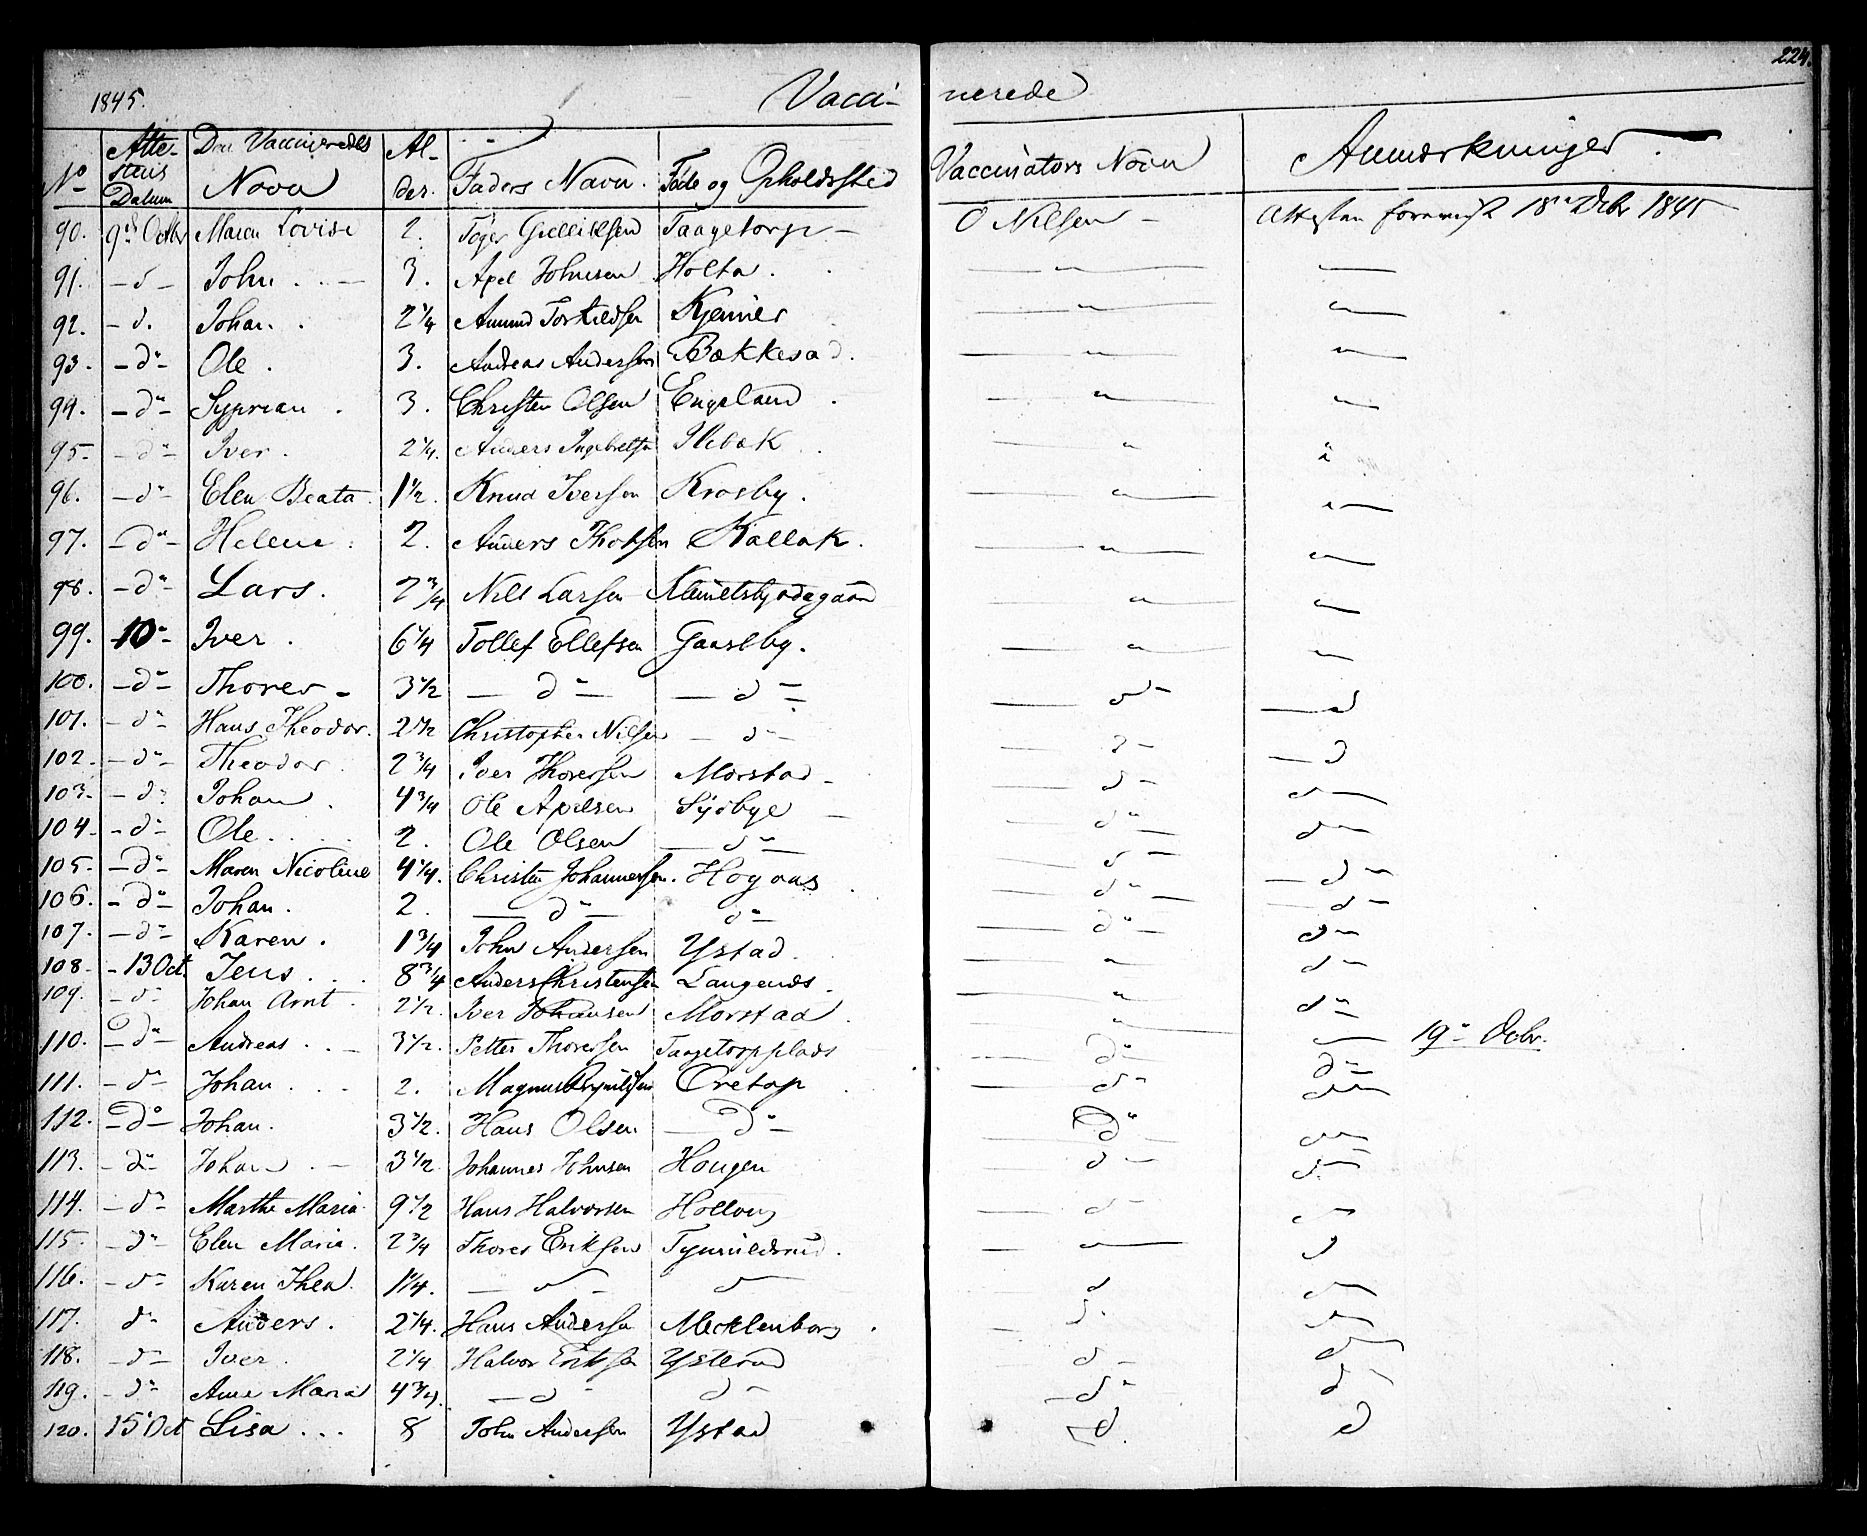 224.
1845. Vacci- nerede
No Atte- stens Datum Den Vaccineredes Navn Al- der. Faders Navn. Føde og Opholdssted Vaccinators Navn Anmærkninger.
90. 9de Octbr Maren Lovise 2. Tøger Gullicksen Taagetorp - O Nilsen - Attesten foreviist 18de Debr 1845
91. - d - John . . - 3. Apel Johnsen Holta . — " — — " —
92. - d. Johan. . 2 1/4 Amund Torkildsen Kjenner — " — — " —
93. - d" - Ole . 3. Andreas Andersen Bækkevad. — " — — " —
94. - d" - Syprian . 3. Christen Olsen Engeland . — " — — " —
95 - - d" - Iver. 2 1/4. Anders Ingebretsen Ilebæk — " "
96. - d" - Elen Beata. 1 1/2. Knud Iversen Krosby. — " — — " —
97. - d" - Helene . 2. Anders Thorsen Kallak. — " — — " —
98. - d" - Lars. 2 3/4 Nils Larsen Klemetsbyødegaard — " — — " —
99. 10" - Iver . 6 1/4 Tollef Ellefsen Gaaseby. — " — — " —
100. - d" - Thorer - 3 1/2 — d" — — d" — — d" - — d
101. - d" - Hans Theodor. 2 1/2 Christopher Nilsen — d" — — d - — d
102. - d" - Theodor. 2 3/4 Iver Thoresen Morstad - — d - d —
103. - d. Johan . 4 3/4 Ole Apelsen Sydbye - — d" — d" —
104. - d" - Ole. . . . 2. Ole Olsen — d" — — d" - — d" -
105. - d" - Maren Nicoline 4 1/4. Christen Johannesen. Høgaas . — d" — — d" -
106. - d" - Johan . 2. — d" — d" — — d" — d" -
107. - d" - Karen . 1 3/4 John Andersen Ystad . — " — d" -
108. - 13 Oct. Jens . . . 8 3/4 Anders Christensen Langenæs . — " — d" -
109. - d" - Johan Arnt . 2 1/2. Iver Johansen Morstad . — " — — 19" Ocbr.
110. - d" - Andreas . . - 3 1/2. Petter Thoresen Taagetorpplads — d" — d" —
111. - d" - Johan . . 2. Magnus Brynildsen Oretop . — d" - d" —
112. - d" - Johan. 3 1/2. Hans Olsen — d" — — d" — d" —
113. - d" - Johan . - 3 1/2 Johannes Johnsen Hougen — d - d" —
114. - d" - Marthe Maria. 9 1/2 Hans Halvorsen — d - — " —
115. - d" - Elen Maria. 2 3/4 Thores Eriksen — " — d
116. - d" - Karen Thea. 1 1/4. — d — d — d d —
117. d" Anders . 2 1/4. Hans Andersen Mecklenborg . — d. d —
118. - d" - Iver . 2 1/4 Halvor Eriksen Ysterud d - d —
119. - d" - Ane Maria 4 3/4. — d - d - — d" - d" -
120. 15 Oct Lisa . . . 8 John Andersen Ystad — d. d